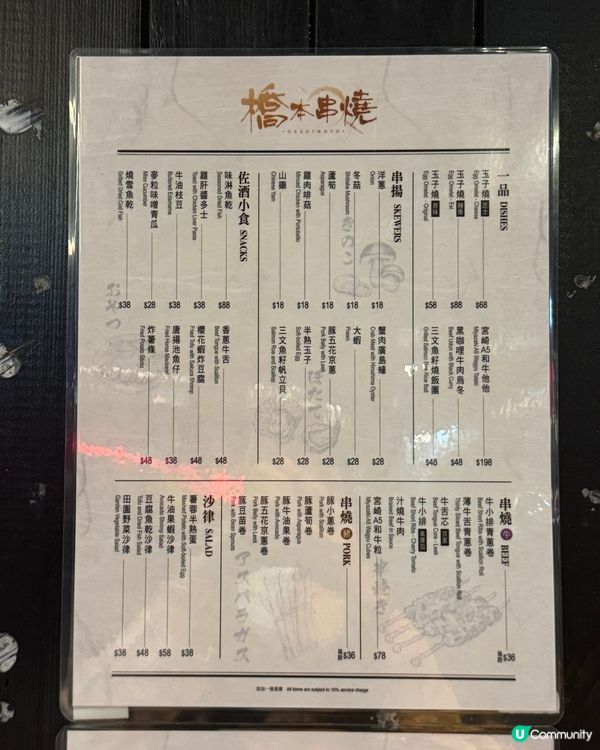 橋本串燒
HASHIMOTO
一品 DISHES
玉子燒 芝士
Egg Omelet - Cheese
$68
玉子燒 鰻魚
Egg Omelet - Eel
$88
玉子燒 原味
Egg Omelet - Original
$58
宮崎A5和牛他他
Miyazaki A5 Wagyu Tataki
$198
黑咖哩牛肉烏冬
Beef Udon with Black Curry
$88
三文魚籽燒飯團
Grilled Salmon Roe Rice Ball
$48
串揚 SKEWERS
洋蔥
Onion
$18
冬菇
Shiitake Mushroom
$18
蘆筍
Asparagus
$18
雞肉啡菇
Minced Chicken with Portobello
$18
山藥
Chinese Yam
$18
蟹肉廣島蠔
Crab Meat with Hiroshima Oyster
$28
大蝦
Prawn
$28
豚五花京蔥
Pork Belly with Leek
$28
半熟玉子
Soft-boiled Egg
$28
三文魚籽帆立貝
Salmon Roe and Scallop
$28
きのこ
ほたて
佐酒小食 SNACKS
味淋魚乾
Seasoned Dried Fish
$88
雞肝醬多士
Toast with Chicken Liver Paste
$38
牛油枝豆
Buttered Edamame
$38
麥粒味噌青瓜
Miso Cucumber
$28
燒雪魚乾
Grilled Dried Cod Fish
$38
香蔥牛舌
Beef Tongue with Scallion
$48
櫻花蝦炸豆腐
Fried Tofu with Sakura Shrimp
$48
唐揚池魚仔
Fried Horse Mackerel
$38
炸薯條
Fried Potato Sticks
$48
おやつ
串燒 牛 BEEF
每款 $36
牛小排青蔥卷
Beef Short Ribs with Scallion Roll
薄牛舌青蔥卷
Thinly Sliced Beef Tongue with Scallion Roll
牛舌芯
牛小排
Beef Short Ribs - Cherry Tomato
汁燒牛肉
宮崎A5和牛粒
Miyazaki A5 Wagyu Cubes
$78
串焼き
串燒 豬 PORK
每款 $36
豚小蔥卷
Pork with Scallion
豚蘆筍卷
Pork with Asparagus
豚牛油果卷
Pork with Avocado
豚五花京蔥卷
Pork Belly with Leek
豚豆苗卷
Pork with Bean Sprouts
アスパラガス
沙律 SALAD
薯蓉半熟蛋
Mashed Potato with Soft-boiled Egg
$38
牛油果蝦沙律
Avocado Shrimp Salad
$58
豆腐魚乾沙律
Tofu and Dried Fish Salad
$48
田園野菜沙律
Garden Vegetable Salad
$38
設加一服務費 All items are subject to 10% service charge
U Community